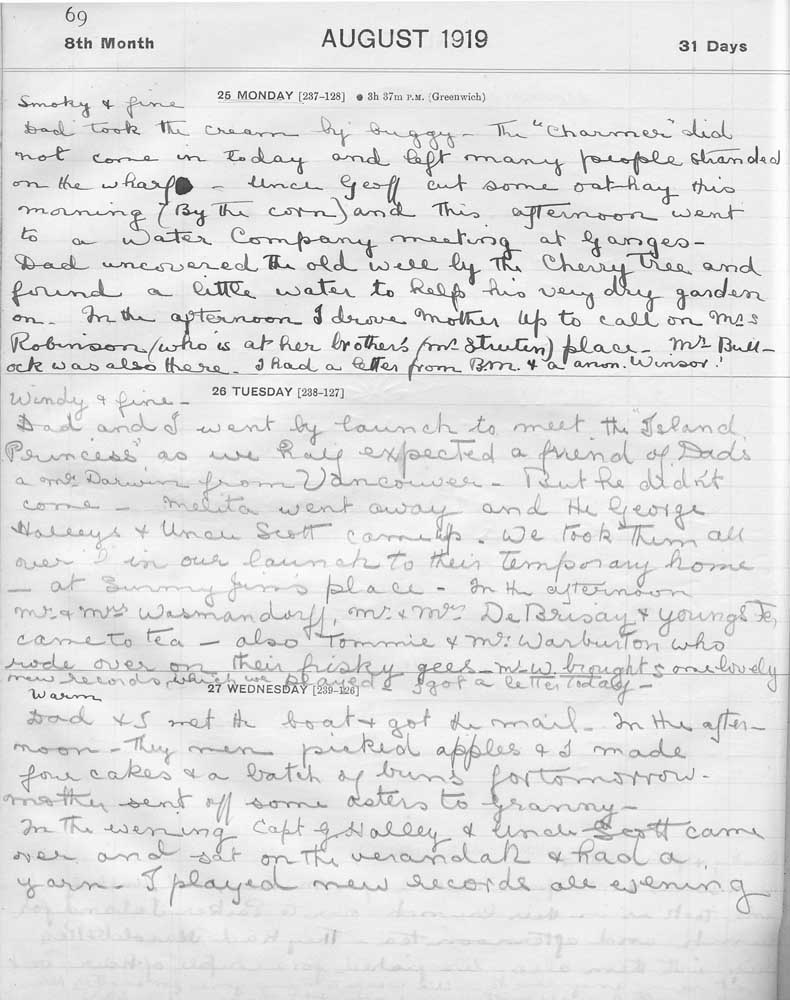 69
8th Month AUGUST 1919 31 Days
25 MONDAY [237–128] ● 3h 37m P.M. (Greenwich)
Smoky & fine
Dad took the cream by buggy – The "Charmer" did
not come in today and left many people stranded
on the wharf – Uncle Geoff cut some oat-hay this
morning (By the corn) and this afternoon went
to a Water Company meeting at Ganges –
Dad uncovered the old well by the Cherry Tree and
found a little water to help his very dry garden
on. In the afternoon I drove Mother up to call on Mrs
Robinson (who is at her brother's (Mr Streuten) place – Mr Bull-
ock was also there. I had a letter from B.M. & a anon. Winsor!
26 TUESDAY [238–127]
Windy & fine –
Dad and I went by launch to meet the "Island
Princess" as we half expected a friend of Dads
a Mr Darwin from Vancouver – But he didn't
come – Melita went away and the George
Halleys & Uncle Scott came up. We took them all
over in our launch to their temporary home
– at Sunny Jim's place – In the afternoon
Mr & Mrs Wasmandorff, Mr & Mrs DeBrisay &
came to tea – also Tommie & Mr Warburton who
rode over on their frisky gees – Mr W. brought some lovely
new records, which we played – I got a letter today –
27 WEDNESDAY [239–126]
Warm
Dad & I met the boat & got the mail – In the after-
noon – They men picked apples & I made
four cakes & a batch of buns for tomorrow –
Mother sent off some asters to Granny –
In the evening Capt G Halley & Uncle Scott came
over and sat on the verandah & had a
yarn – I played new records all evening